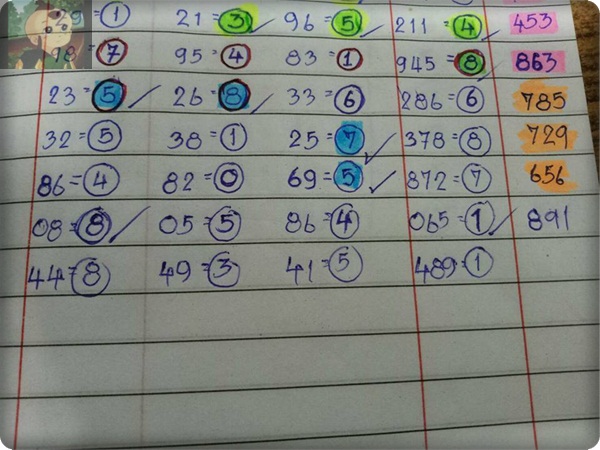 9=1 21=3 96=5 211=4 453
98=7 95=4 83=1 945=8 863
23=5 26=8 33=6 286=6 785
32=5 38=1 25=7 378=8 729
86=4 82=0 69=5 872=7 656
08=8 05=5 86=4 065=1 891
44=8 49=3 41=5 489=1